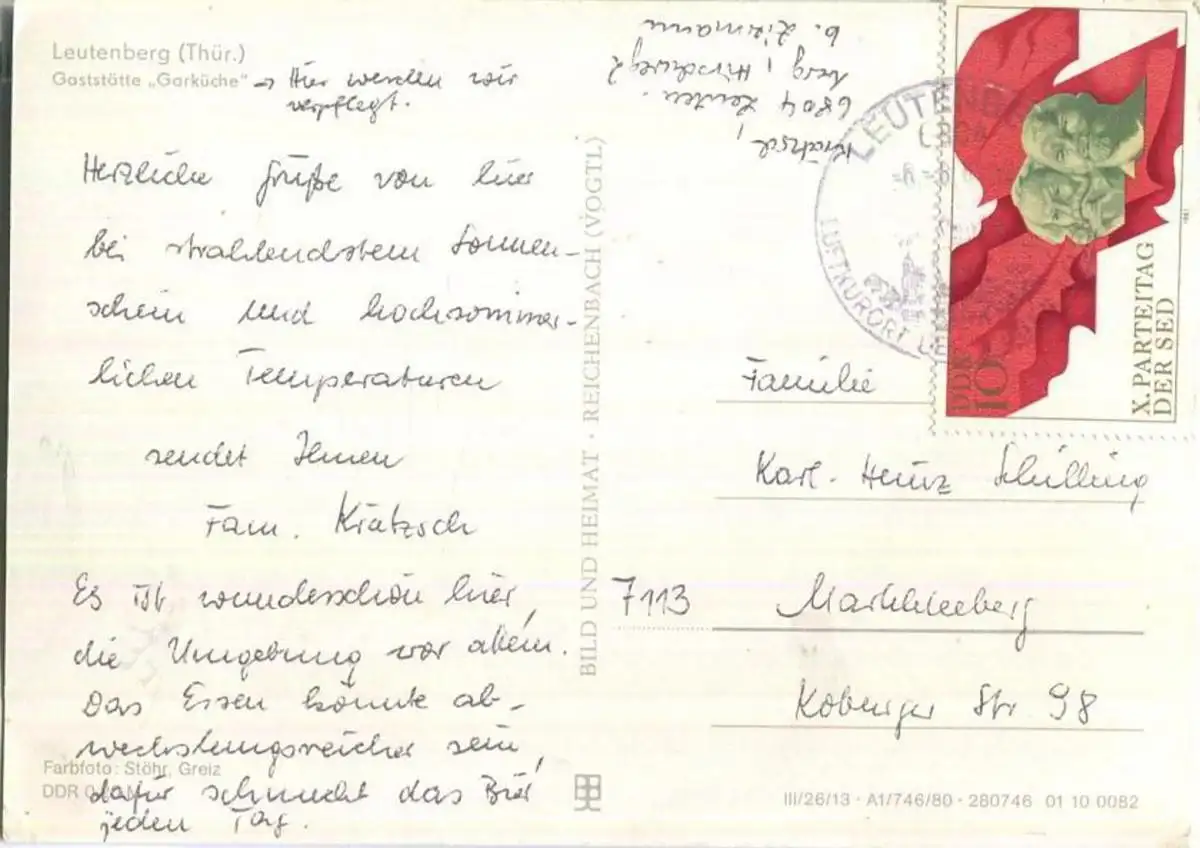 Leutenberg (Thür.)
Gaststätte „Garküche“ → Hier werden wir
verpflegt.
Herzliche Grüße von hier
bei strahlendstem Sonnen-
schein und hochsommer-
lichen Temperaturen
sendet Ihnen
Fam. Krätzsch
Es ist wunderschön hier,
die Umgebung vor allem.
Das Essen könnte ab-
wechslungsreicher sein,
dafür schmeckt das Bier
jeden Tag.
Farbfoto: Stöhr, Greiz
DDR
BILD UND HEIMAT · REICHENBACH (VOGTL)
Krätzsch,
6804 Leuten-
berg, Hirschweg 2
b.
LEUTENBERG
LUFTKURORT
DDR
10
X. PARTEITAG
DER SED
Familie
Karl-Heinz Schilling
7113 Markkleeberg
Koburger Str 98
III/26/13 · A1/746/80 · 280746 01 10 0082